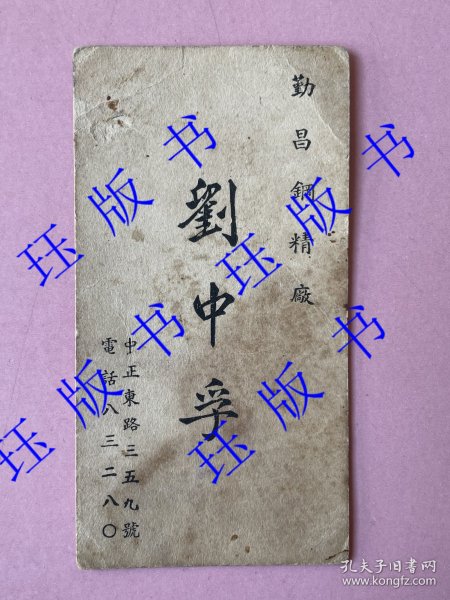 勤昌鋼精廠
劉中孚
中正東路三五九號
電話八三二八〇
珏版书
珏版书
珏版书
珏版书
孔夫子旧书网
www.kongfz.com